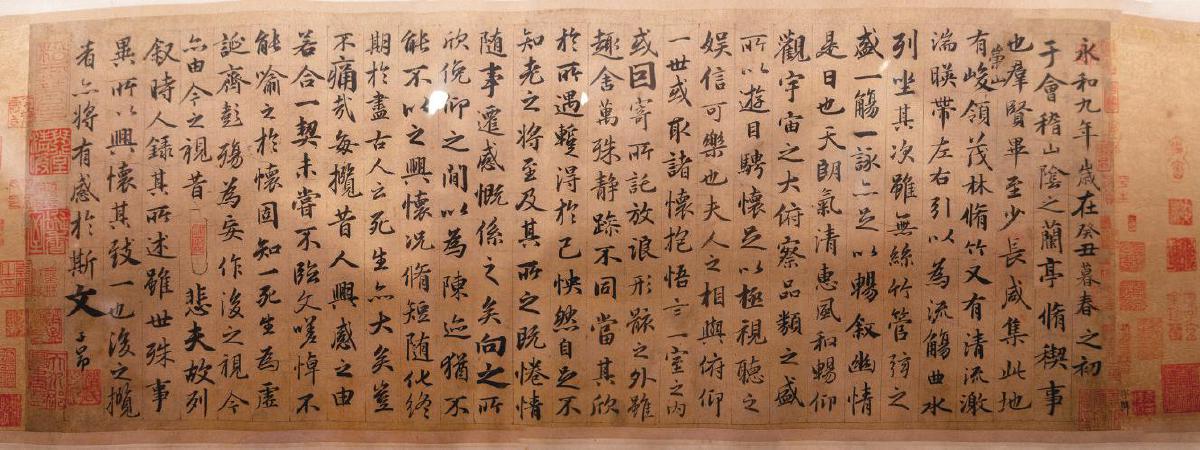 永和九年歲在癸丑暮春之初
于會稽山陰之蘭亭脩稧事
也羣賢畢至少長咸集此地
有崇山峻領茂林脩竹又有清流激
湍暎帶左右引以為流觴曲水
列坐其次雖無絲竹管弦之
盛一觴一詠亦足以暢叙幽情
是日也天朗氣清惠風和暢仰
觀宇宙之大俯察品類之盛
所以遊目騁懷足以極視聽之
娛信可樂也夫人之相與俯仰
一世或取諸懷抱悟言一室之內
或因寄所託放浪形骸之外雖
趣舍萬殊静躁不同當其欣
於所遇蹔得於己怏然自足不
知老之將至及其所之既惓情
随事遷感慨係之矣向之所
欣俛仰之間以為陳迹猶不
能不以之興懷況脩短随化終
期於盡古人云死生亦大矣豈
不痛哉每攬昔人興感之由
若合一契未嘗不臨文嗟悼不
能喻之於懷固知一死生為虛
誕齊彭殤為妄作後之視今
亦由今之視昔 悲夫故列
叙時人錄其所述雖世殊事
異所以興懷其致一也後之攬
者亦將有感於斯文 子昂